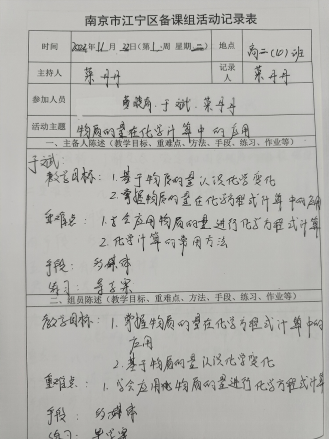 南京市江宁区备课组活动记录表
时间 年11月 日(第 周 星期二) 地点 高二(10)班
主持人 莱丹丹 记录人 莱丹丹
参加人员 于斌、莱丹丹
活动主题 物质的量在化学计算中的应用
一、主备人陈述(教学目标、重难点、方法、手段、练习、作业等)
于斌:
教学目标: 1.基于物质的量认识化学变化
2.掌握物质的量在化学方程式计算中的应用
重难点: 1.学会应用物质的量进行化学方程式计算
2.化学计算的常用方法
手段: 多媒体
练习: 导学案
二、组员陈述(教学目标、重难点、方法、手段、练习、作业等)
教学目标: 1.掌握物质的量在化学方程式计算中的
应用
2.基于物质的量认识化学变化
重难点: 1.学会应用物质的量进行化学方程式计算
手段: 多媒体
练习: 导学案